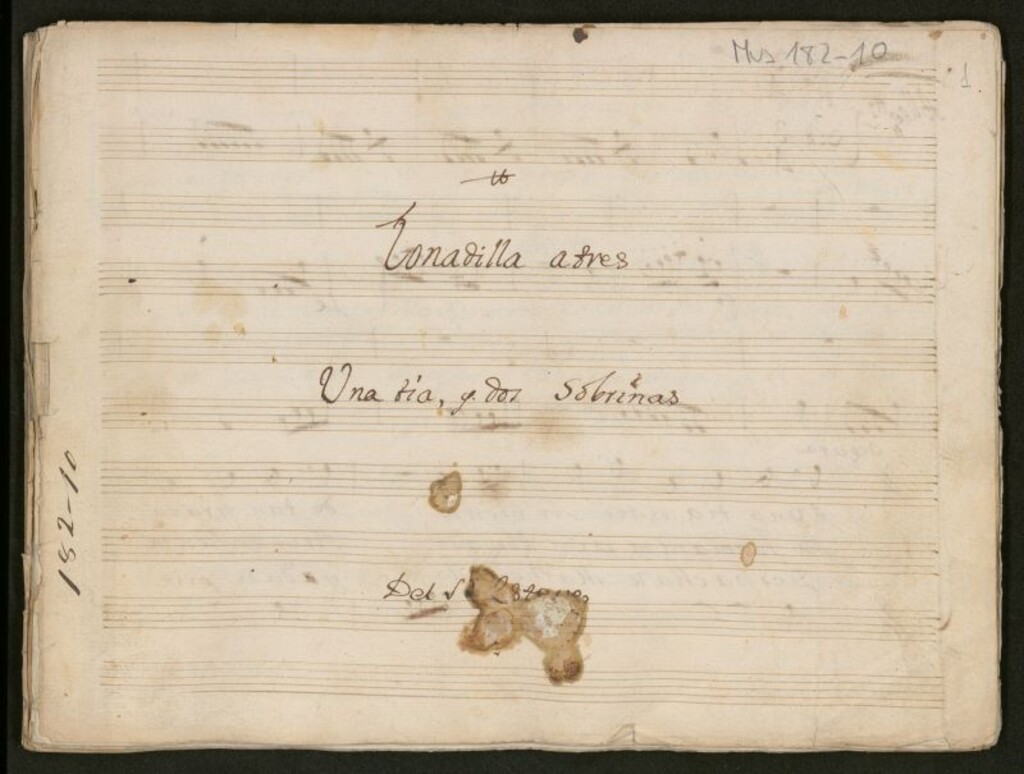 Mus 182-10
1
Tonadilla a tres
Una tia, y dos Sobrinas
Del Sr Esteve
182-10